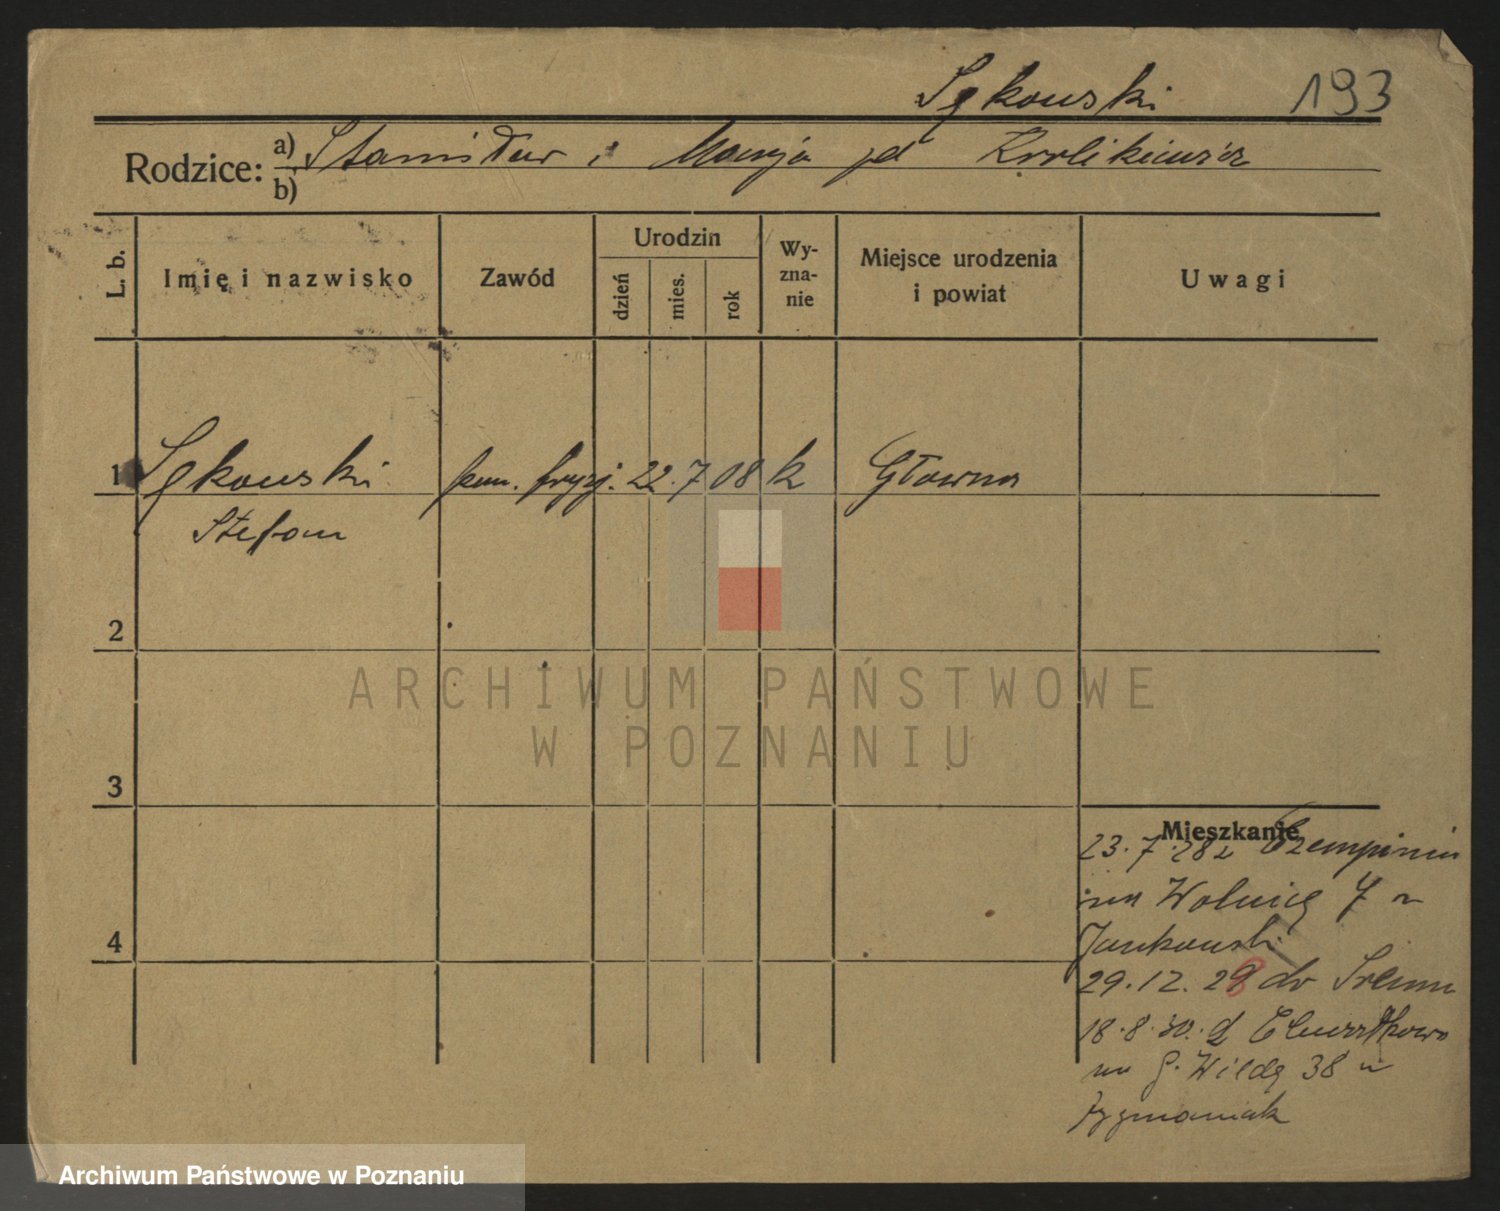 Sękowski 193
Rodzice: a) Stanisław i Maryja zd Krolikiewicz
b)
L. b. Imię i nazwisko Zawód Urodzin dzień mies. rok Wy-zna-nie Miejsce urodzenia i powiat Uwagi
1 Sękowski pom. fryzj. 22. 7 08 k Główna
Stefan
2
ARCHIWUM PAŃSTWOWE
W POZNANIU
3
Mieszkanie
23.7.28 z Czempinia
na Wolnicę 7 u
Jankowski
29.12.28 do Śremu
18.8.30. z
na G. Wildę 38 u
4
Archiwum Państwowe w Poznaniu